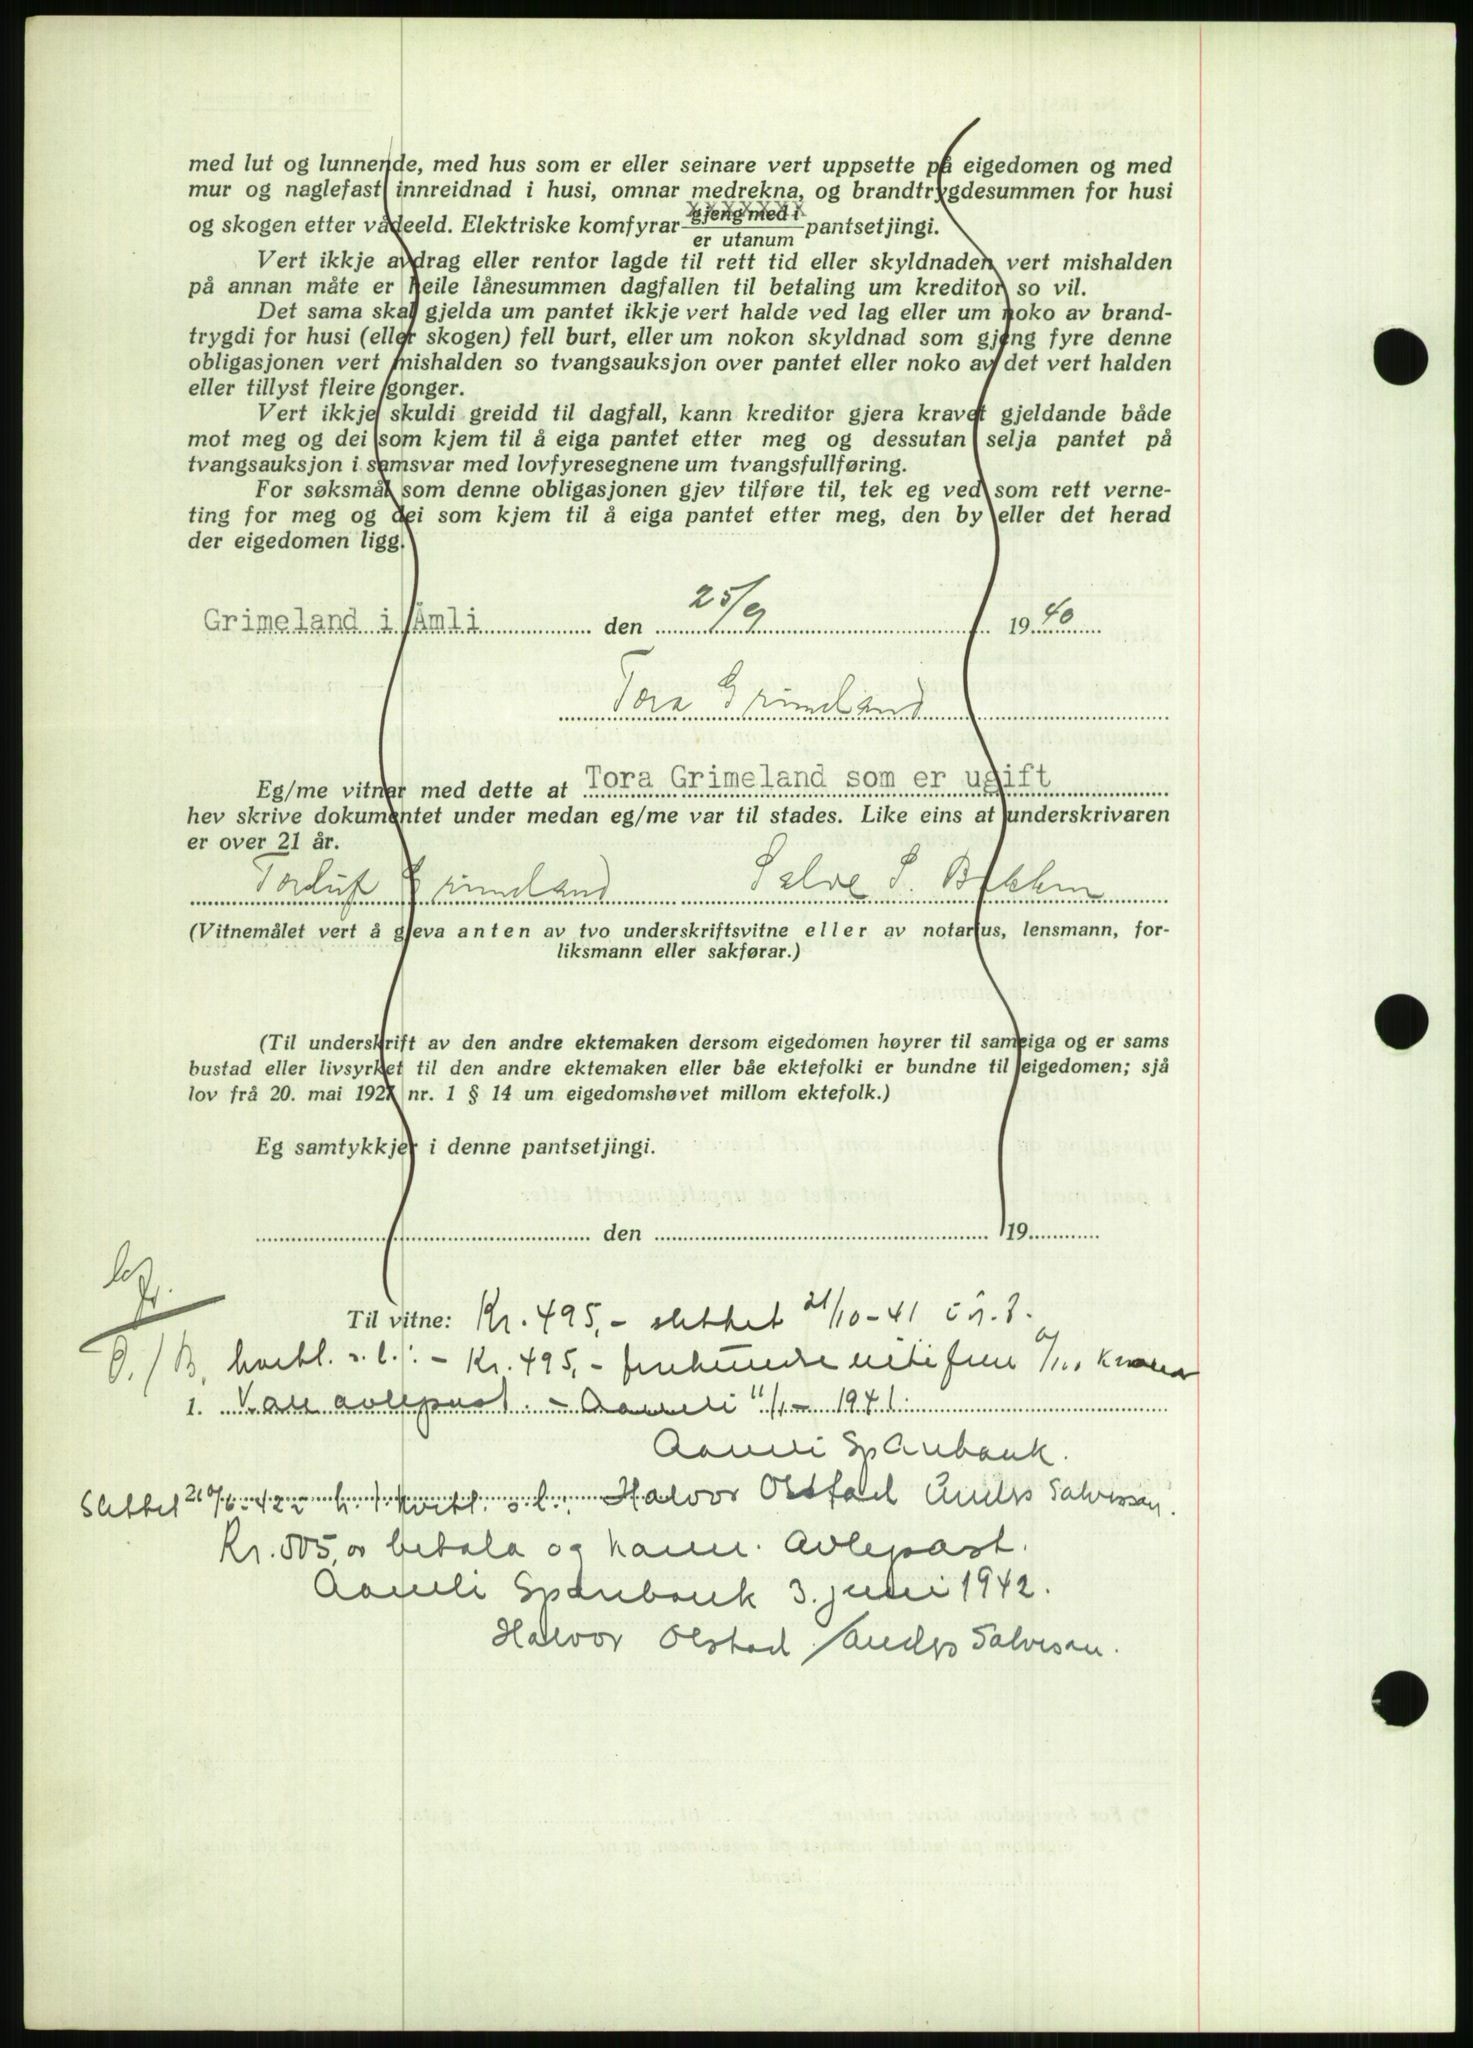 med lut og lunnende, med hus som er eller seinare vert uppsette på eigedomen og med
mur og naglefast innreidnad i husi, omnar medrekna, og brandtrygdesummen for husi
og skogen etter vådeeld. Elektriske komfyrar gjeng med i er utanum pantsetjingi.
Vert ikkje avdrag eller rentor lagde til rett tid eller skyldnaden vert mishalden
på annan måte er heile lånesummen dagfallen til betaling um kreditor so vil.
Det sama skal gjelda um pantet ikkje vert halde ved lag eller um noko av brand-
trygdi for husi (eller skogen) fell burt, eller um nokon skyldnad som gjeng fyre denne
obligasjonen vert mishalden so tvangsauksjon over pantet eller noko av det vert halden
eller tillyst fleire gonger.
Vert ikkje skuldi greidd til dagfall, kann kreditor gjera kravet gjeldande både
mot meg og dei som kjem til å eiga pantet etter meg og dessutan selja pantet på
tvangsauksjon i samsvar med lovfyresegnene um tvangsfullføring.
For søksmål som denne obligasjonen gjev tilføre til, tek eg ved som rett verne-
ting for meg og dei som kjem til å eiga pantet etter meg, den by eller det herad
der eigedomen ligg.
Grimeland i Åmli den 25/9 1940
Tora Grimeland
Eg/me vitnar med dette at Tora Grimeland som er ugift
hev skrive dokumentet under medan eg/me var til stades. Like eins at underskrivaren
er over 21 år.
Torluf Grimeland Salve S. Bakken
(Vitnemålet vert å gjeva anten av tvo underskriftsvitne eller av notarius, lensmann, for-
liksmann eller sakførar.)
(Til underskrift av den andre ektemaken dersom eigedomen høyrer til sameiga og er sams
bustad eller livsyrket til den andre ektemaken eller båe ektefolki er bundne til eigedomen; sjå
lov frå 20. mai 1927 nr. 1 § 14 um eigedomshøvet millom ektefolk.)
Eg samtykkjer i denne pantsetjingi.
den 19
Til vitne: Kr. 495,- slettet 21/10-41
kvitl. s.l.: - Kr. 495,- firehundre nitifem 0/100 Kroner
1. avlepast. - Aamli 11/1- 1941.
Aamli Sparebank.
Slettet kvitt. s.l.: Halvor Olstad Anders Salvesen.
Kr. 505,00 betala og avlepast.
Aamli Sparebank 3. juni 1942.
Halvor Olstad / Anders Salvesen.